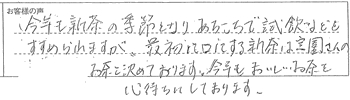 お客様の声
今年も新茶の季節となりあちこちで試飲などを
すすめられますが、最初に口にする新茶は宝園さんの
お茶と決めております。今年もおいしいお茶を
心待ちにしております。